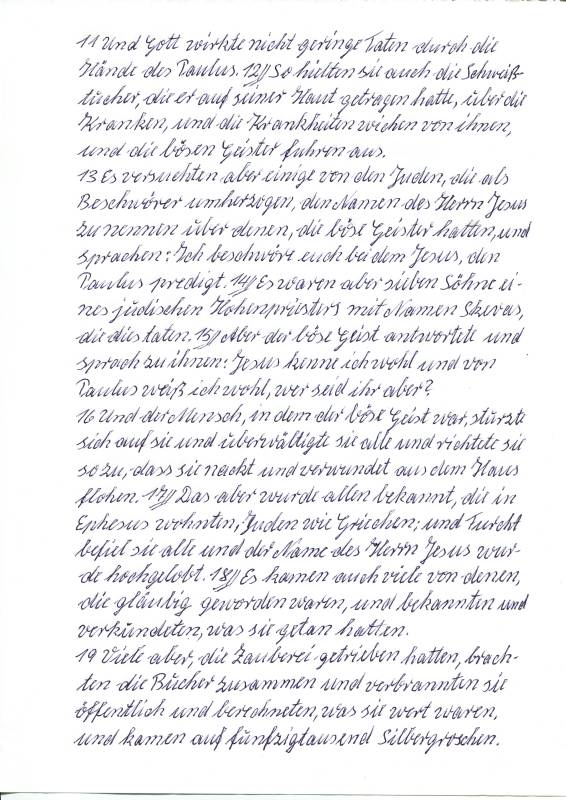 11 Und Gott wirkte nicht geringe Taten durch die
Hände des Paulus. 12// So hielten sie auch die Schweiß-
tücher, die er auf seiner Haut getragen hatte, über die
Kranken, und die Krankheiten wichen von ihnen,
und die bösen Geister fuhren aus.
13 Es versuchten aber einige von den Juden, die als
Beschwörer umherzogen, den Namen des Herrn Jesus
zu nennen über denen, die böse Geister hatten, und
sprachen: Ich beschwöre euch bei dem Jesus, den
Paulus predigt. 14// Es waren aber sieben Söhne ei-
nes jüdischen Hohenpriesters mit Namen Skevas,
die dies taten. 15// Aber der böse Geist antwortete und
sprach zu ihnen: Jesus kenne ich wohl und von
Paulus weiß ich wohl, wer seid ihr aber?
16 Und der Mensch, in dem der böse Geist war, stürzte
sich auf sie und überwältigte sie alle und richtete sie
so zu, dass sie nackt und verwundet aus dem Haus
flohen. 17// Das aber wurde allen bekannt, die in
Ephesus wohnten, Juden wie Griechen; und Furcht
befiel sie alle und der Name des Herrn Jesus wur-
de hochgelobt. 18// Es kamen auch viele von denen,
die gläubig geworden waren, und bekannten und
verkündeten, was sie getan hatten.
19 Viele aber, die Zauberei getrieben hatten, brach-
ten die Bücher zusammen und verbrannten sie
öffentlich und berechneten, was sie wert waren,
und kamen auf fünfzigtausend Silbergroschen.